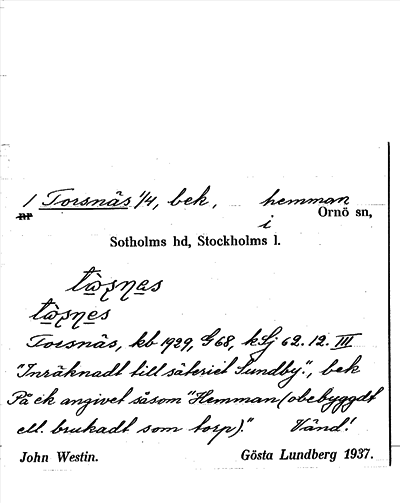 1 Torsnäs 1/4, bek, hemman
nr i Ornö sn,
Sotholms hd, Stockholms l.
Torsnäs, kb 1929, G 68, kLj 62. 12. III
"Inräknadt till säteriet Sundby.", bek
På ek angivet såsom "Hemman (obebyggdt
ell. brukadt som torp)." Vänd!
John Westin. Gösta Lundberg 1937.